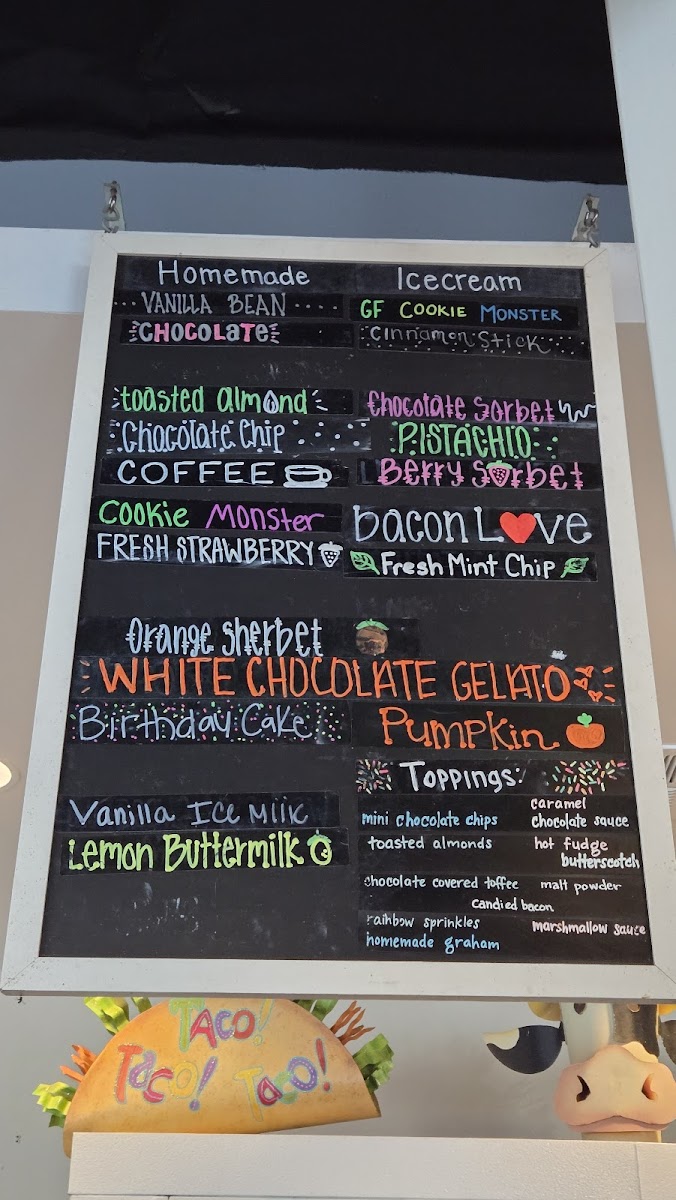 Homemade Icecream
VANILLA BEAN
CHOCOLATE
GF COOKIE MONSTER
Cinnamon Stick
toasted almond
Chocolate Chip
COFFEE
Chocolate Sorbet
PISTACHIO
Berry Sorbet
Cookie Monster
FRESH STRAWBERRY
bacon Love
Fresh Mint Chip
Orange Sherbet
WHITE CHOCOLATE GELATO
Birthday Cake
Pumpkin
Vanilla Ice Milk
Lemon Buttermilk
Toppings:
mini chocolate chips
toasted almonds
chocolate covered toffee
candied bacon
rainbow sprinkles
homemade graham
caramel
chocolate sauce
hot fudge
butterscotch
malt powder
marshmallow sauce
TACO!
Taco! Taco!